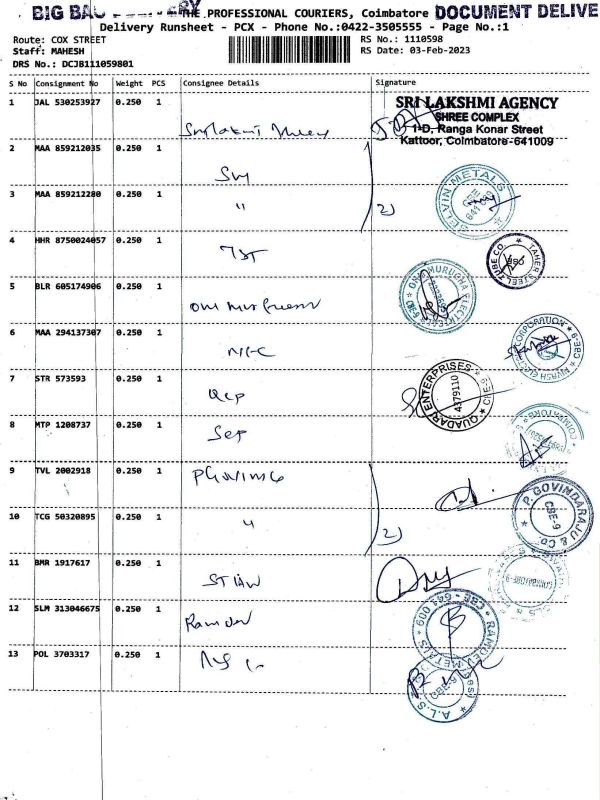 BIG BAG DELIVERY THE PROFESSIONAL COURIERS, Coimbatore DOCUMENT DELIVE
Delivery Runsheet - PCX - Phone No.:0422-3505555 - Page No.:1
Route: COX STREET RS No.: 1110598
Staff: MAHESH RS Date: 03-Feb-2023
DRS No.: DCJB111059801
S No Consignment No Weight PCS Consignee Details Signature
1 JAL 530253927 0.250 1
SRI LAKSHMI AGENCY
SHREE COMPLEX
1-D, Ranga Konar Street
Kattoor, Coimbatore-641009
2 MAA 859212035 0.250 1 Sry
SELVIN METALS
3 MAA 859212280 0.250 1 " 2)
4 HHR 8750024057 0.250 1
TAHER STEEL TUBE CO. CBE
5 BLR 605174906 0.250 1 Om Murugan
OM MURUGHA ELECTRICALS
6 MAA 294137307 0.250 1
CORPORATION CBE-9
7 STR 573593 0.250 1 QEP
QUADARI ENTERPRISES CBE-9 4379110
8 MTP 1208737 0.250 1 SEP
COIMBATORE
9 TVL 2002918 0.250 1 P Govind
P. GOVINDARAJU & CO CBE-9
10 TCG 50320895 0.250 1 " 2)
11 BMR 1917617 0.250 1
COIMBATORE-9
12 SLM 313046675 0.250 1 Ramdev
RAMDEV METALS CBE - 641 009
13 POL 3703317 0.250 1
A.L.S. CBE-9